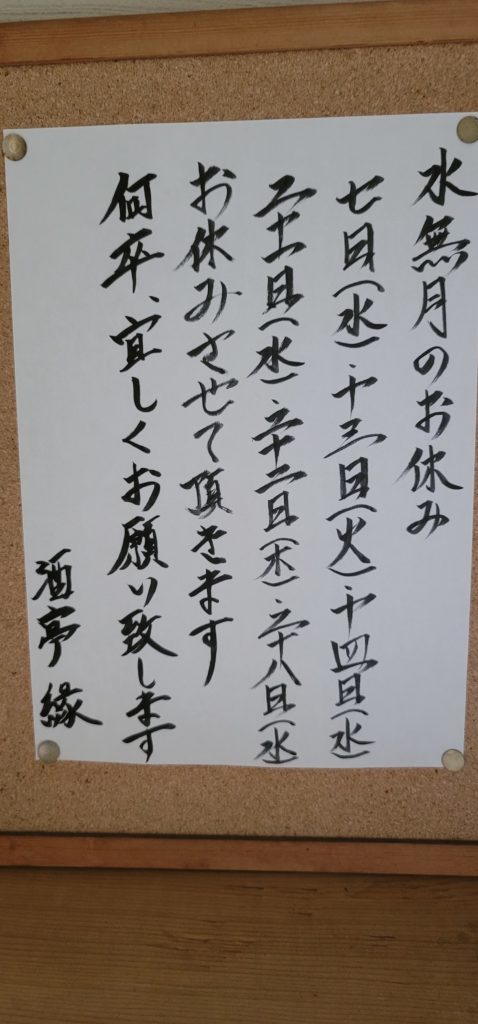 水無月のお休み
七日(水)、十三日(火)、十四日(水)
二十一日(水)、二十二日(木)、二十八日(水)
お休みさせて頂きます
何卒、宜しくお願い致します
酒亭 縁